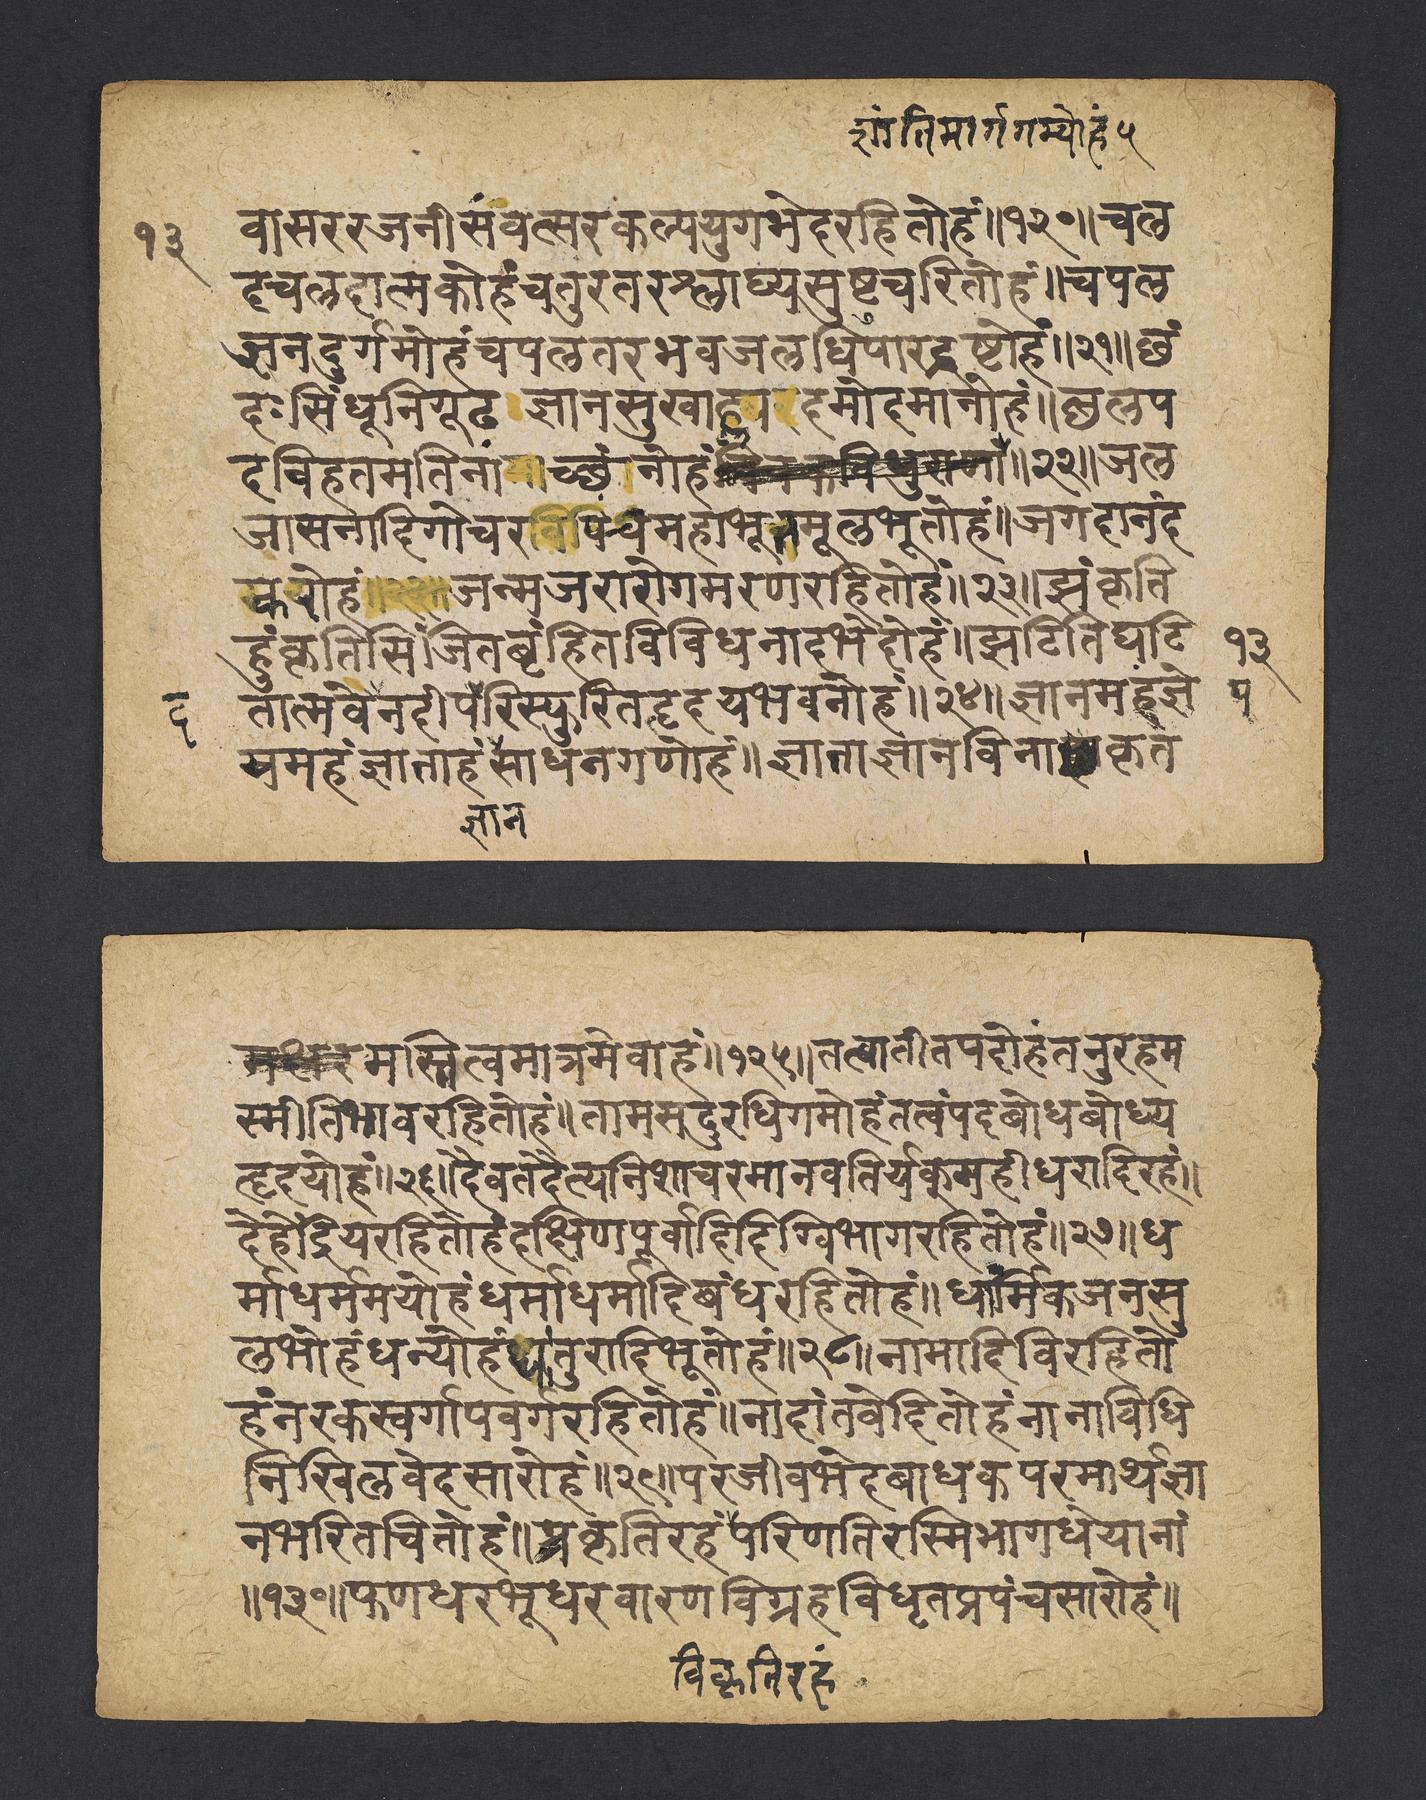 शांतिमार्गगम्योहं ५
१३
वासररजनीसंवत्सरकल्पयुगभेदरहितोहं॥१२०॥चल
दचलदात्मकोहंचतुरतरश्लाघ्यसुष्टचरितोहं॥चपल
जनदुर्गमोहंचपलतरभवजलधिपारद्रष्टोहं॥२१॥छं
दःसिंधुनिगूढ ज्ञानसुखा दमोदमानोहं॥छलप
दविहतमतिनां नोहं ॥२२॥जल
जासनादिगोचर महाभूतमूलभूतोहं॥जगदानंद
करोहं जन्मजरारोगमरणरहितोहं॥२३॥झंकृति
हुंकृतिसिंजितबृंहितविविधनादभेदोहं॥झटितिघटि
१३
तात्मवेनदीपरिस्फुरितहृदयभवनोहं॥२४॥ज्ञानमहंज्ञे
द
प
यमहंज्ञाताहंसाधनगणोहं॥ज्ञाताज्ञानविना कृत
ज्ञान
मस्तित्वमात्रमेवाहं॥१२५॥तत्वातीतपदोहंतनुरहम
स्मीतिभावरहितोहं॥तामसदुरधिगमोहंतत्वंपदबोधबोध्य
हृदयोहं॥२६॥दैवतदैत्यनिशाचरमानवतिर्यक्महीधरादिरहं॥
देहेंद्रियरहितोहंदक्षिणपूर्वादिदिग्विभागरहितोहं॥२७॥ध
र्माधर्ममयोहंधर्माधर्मादिबंधरहितोहं॥धार्मिकजनसु
लभोहंधन्योहंधातुरादिभूतोहं॥२८॥नामादिविरहितो
हंनरकस्वर्गापवर्गरहितोहं॥नादांतवेदितोहंनानाविधि
निखिलवेदसारोहं॥२९॥परजीवभेदबाधकपरमार्थज्ञा
नभरितचितोहं॥प्रकृतिरहंपरिणतिरस्मिभागधेयानां
॥१३०॥फणधरभूधरवारणविग्रहविधृतप्रपंचसारोहं॥
विकृतिरहं